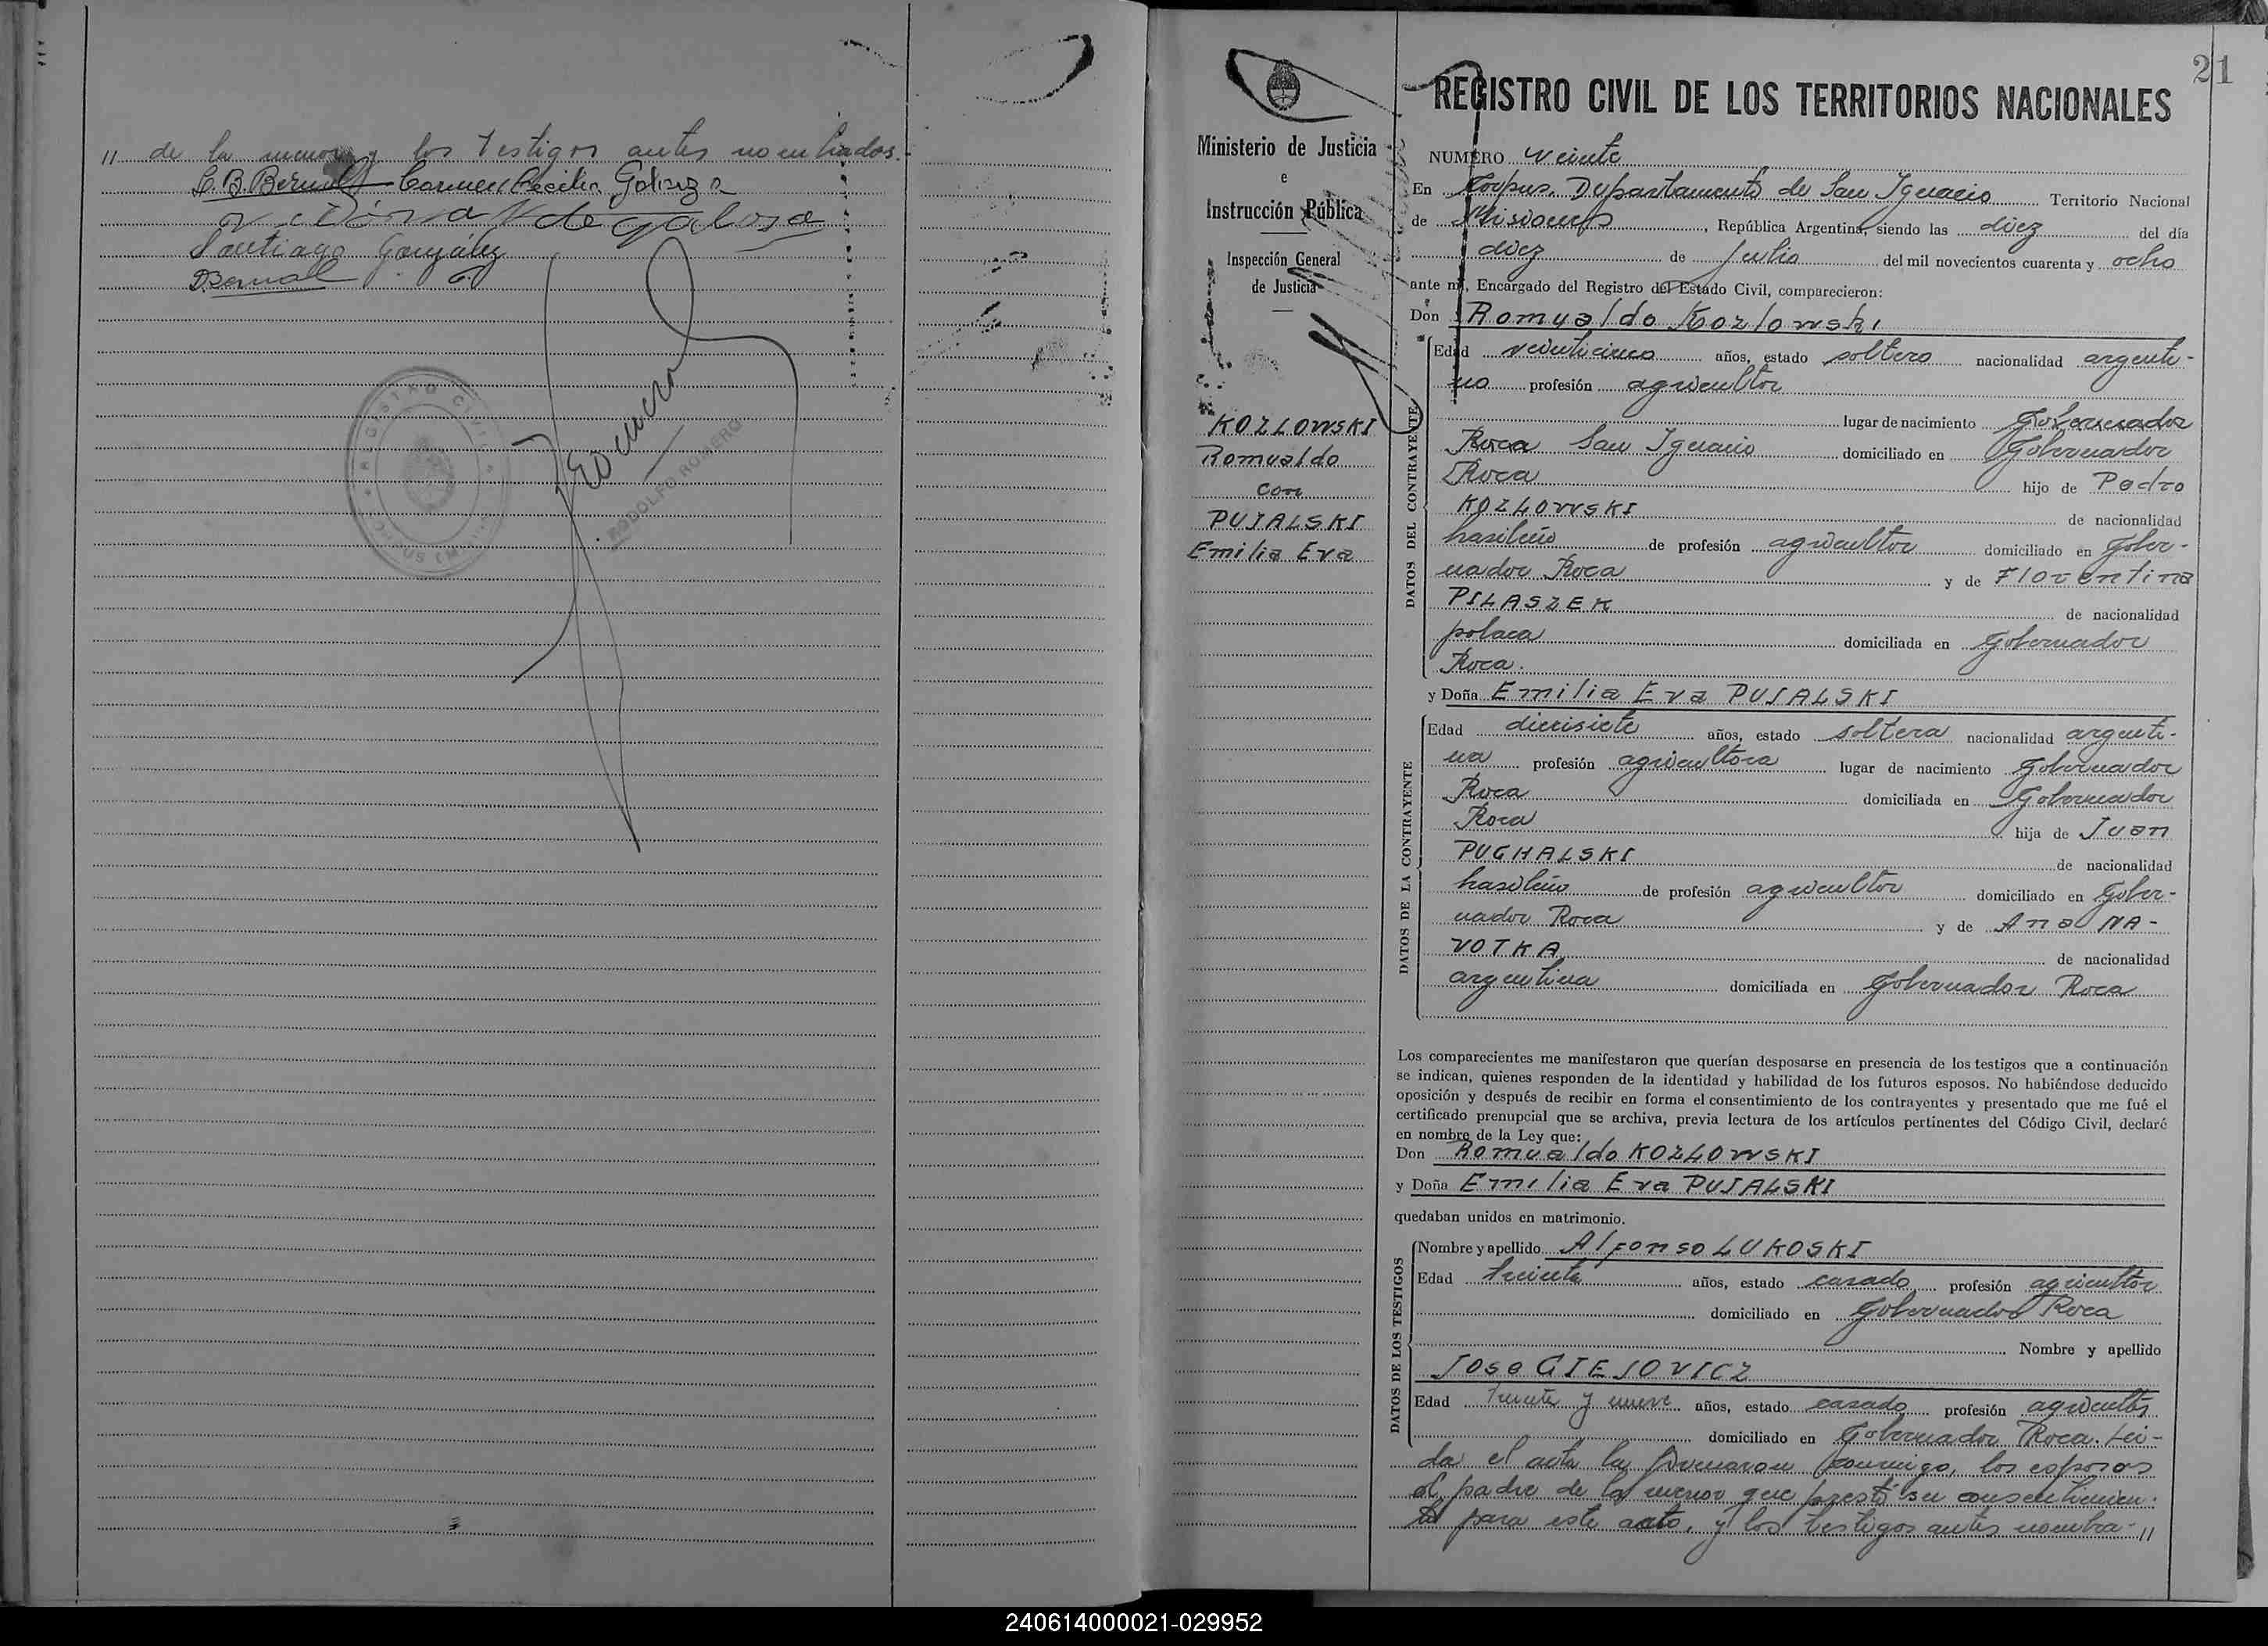 " de la menor y los testigos antes nombrados.-
Carmen Cecilia
de
Santiago González
D. Bernal
REGISTRO CIVIL
RODOLFO ROMERO
21
REGISTRO CIVIL DE LOS TERRITORIOS NACIONALES
Ministerio de Justicia
e
Instrucción Pública
Inspección General
de Justicia
KOZLOWSKI
Romualdo
con
PUJALSKI
Emilia Eva
NUMERO veinte
En Corpus, Departamento de San Ignacio Territorio Nacional
de Misiones, República Argentina, siendo las diez del día
diez de Julio del mil novecientos cuarenta y ocho
ante mí, Encargado del Registro del Estado Civil, comparecieron:
Don Romualdo Kozlowski
DATOS DEL CONTRAYENTE
Edad veinticinco años, estado soltero nacionalidad argenti-
no profesión agricultor
lugar de nacimiento Gobernador
Roca San Ignacio domiciliado en Gobernador
Roca hijo de Pedro
KOZLOWSKI de nacionalidad
brasileño de profesión agricultor domiciliado en Gober-
nador Roca y de Florentina
PILASZEK de nacionalidad
polaca domiciliada en Gobernador
Roca.
y Doña Emilia Eva PUJALSKI
DATOS DE LA CONTRAYENTE
Edad diecisiete años, estado soltera nacionalidad argenti-
na profesión agricultora lugar de nacimiento Gobernador
Roca domiciliada en Gobernador
Roca hija de Juan
PUGHALSKI de nacionalidad
brasileño de profesión agricultor domiciliado en Gober-
nador Roca y de Ana NA-
VOTKA de nacionalidad
argentina domiciliada en Gobernador Roca
Los comparecientes me manifestaron que querían desposarse en presencia de los testigos que a continuación
se indican, quienes responden de la identidad y habilidad de los futuros esposos. No habiéndose deducido
oposición y después de recibir en forma el consentimiento de los contrayentes y presentado que me fué el
certificado prenupcial que se archiva, previa lectura de los artículos pertinentes del Código Civil, declaré
en nombre de la Ley que:
Don Romualdo KOZLOWSKI
y Doña Emilia Eva PUJALSKI
quedaban unidos en matrimonio.
DATOS DE LOS TESTIGOS
Nombre y apellido Alfonso LUKOSKI
Edad treinta años, estado casado profesión agricultor
domiciliado en Gobernador Roca
Nombre y apellido
Jose CIEJOVICZ
Edad treinta y nueve años, estado casado profesión agricultor
domiciliado en Gobernador Roca. Leí-
da el acta la firmaron conmigo, los esposos
el padre de la menor que prestó su consentimien-
to para este acto, y los testigos antes nombra-"
240614000021-029952